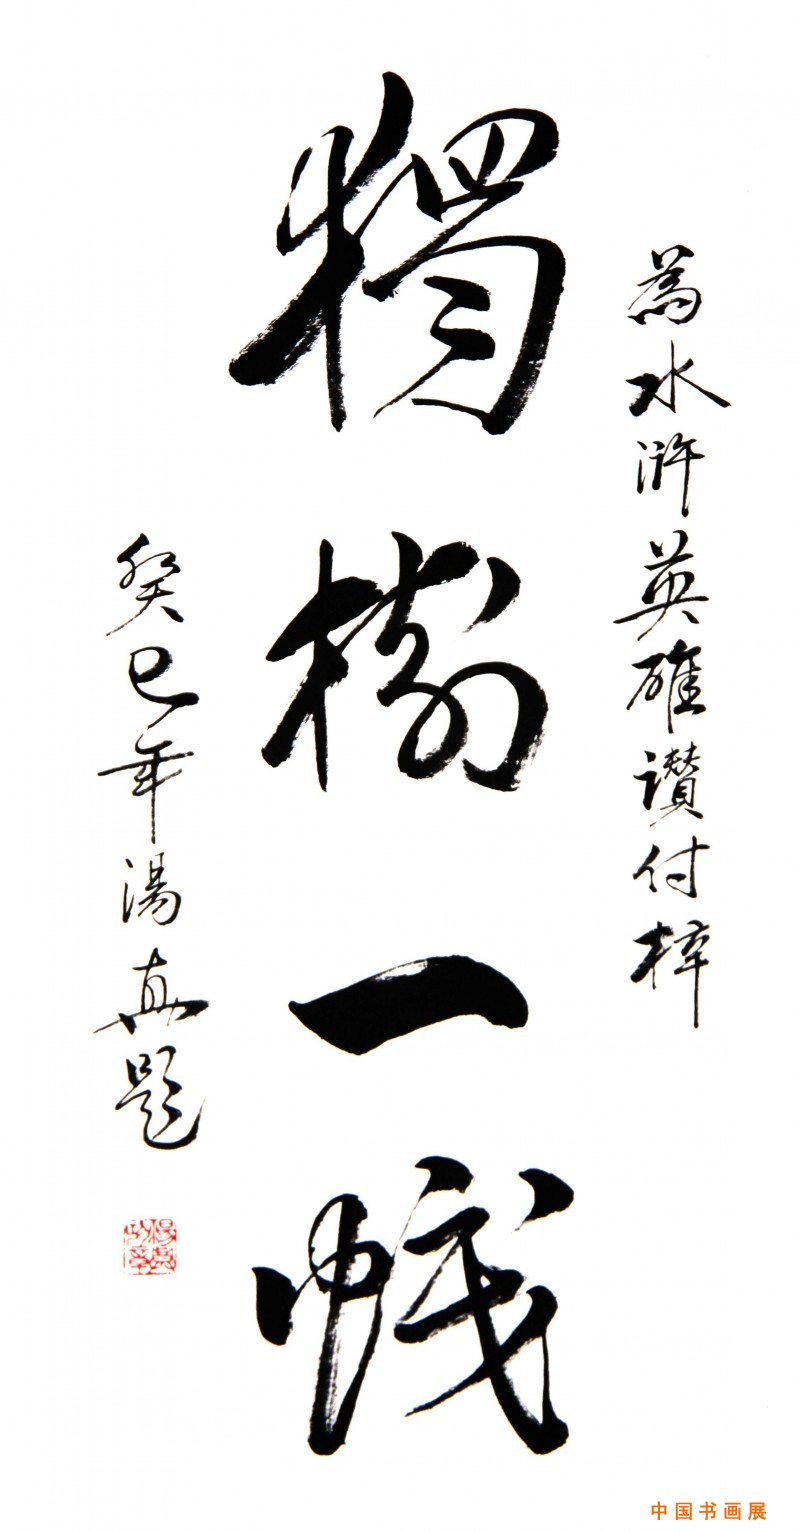 為水滸英雄讚付梓
獨樹一幟
癸巳年湯真題
中国书画展